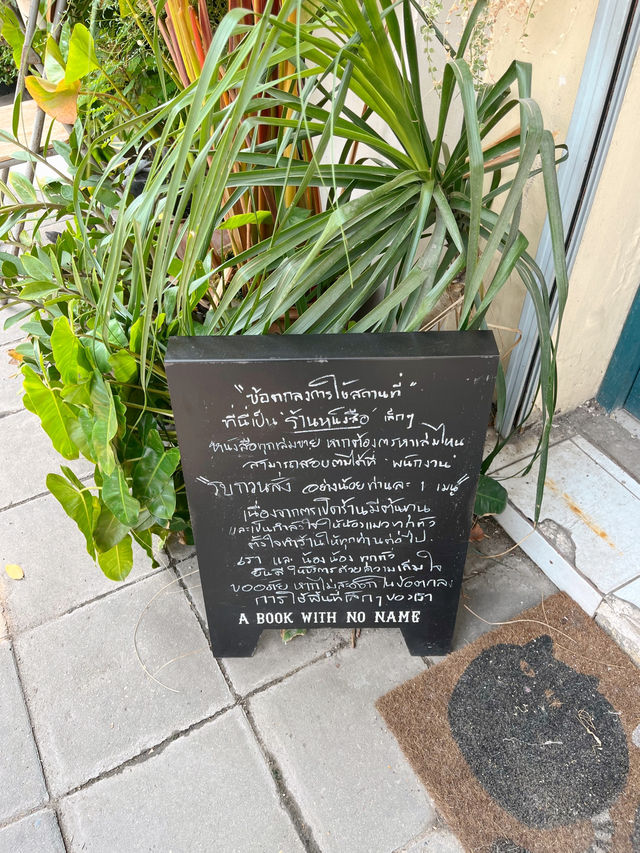 "ข้อตกลงการใช้สถานที่"
ที่นี่เป็น 'ร้านหนังสือ' เล็กๆ
หนังสือทุกเล่มขาย หากต้องตรหาเล่มไหน
สามารถสอบถามได้ที่ 'พนักงาน'
"รบกวนสั่ง อย่างน้อยท่านละ 1 เมนู"
เนื่องจากการเปิดร้านมีต้นทุน
และเป็นกำลังใจให้น้องแมวทุกตัว
ตั้งใจทำร้านให้ทุกท่านต่อไป
เรา และ น้องน้อง ทุกตัว
ยินดีให้บริการด้วยความเต็มใจ
ขออภัย หากไม่สะดวก ในข้อตกลง
การใช้พื้นที่เล็กๆ ของเรา
A BOOK WITH NO NAME